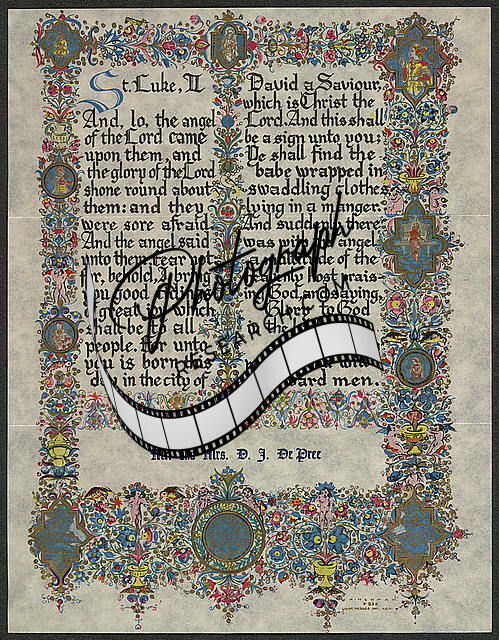 St. Luke, II
And, lo, the angel
of the Lord came
upon them, and
the glory of the Lord
shone round about
them: and they
were sore afraid.
And the angel said
unto them, Fear not
for, behold, I bring
you good tidings
great which
shall be all
people. For unto
you is born this
day in the city of
David a Saviour,
which is Christ the
Lord. And this shall
be a sign unto you:
Ye shall find the
babe wrapped in
swaddling clothes
lying in a manger.
And suddenly there
was angel
multitude of the
host prais-
ing God and saying,
Glory to God
in the
men.
Mr. and Mrs. D. J. De Pree
Photograph